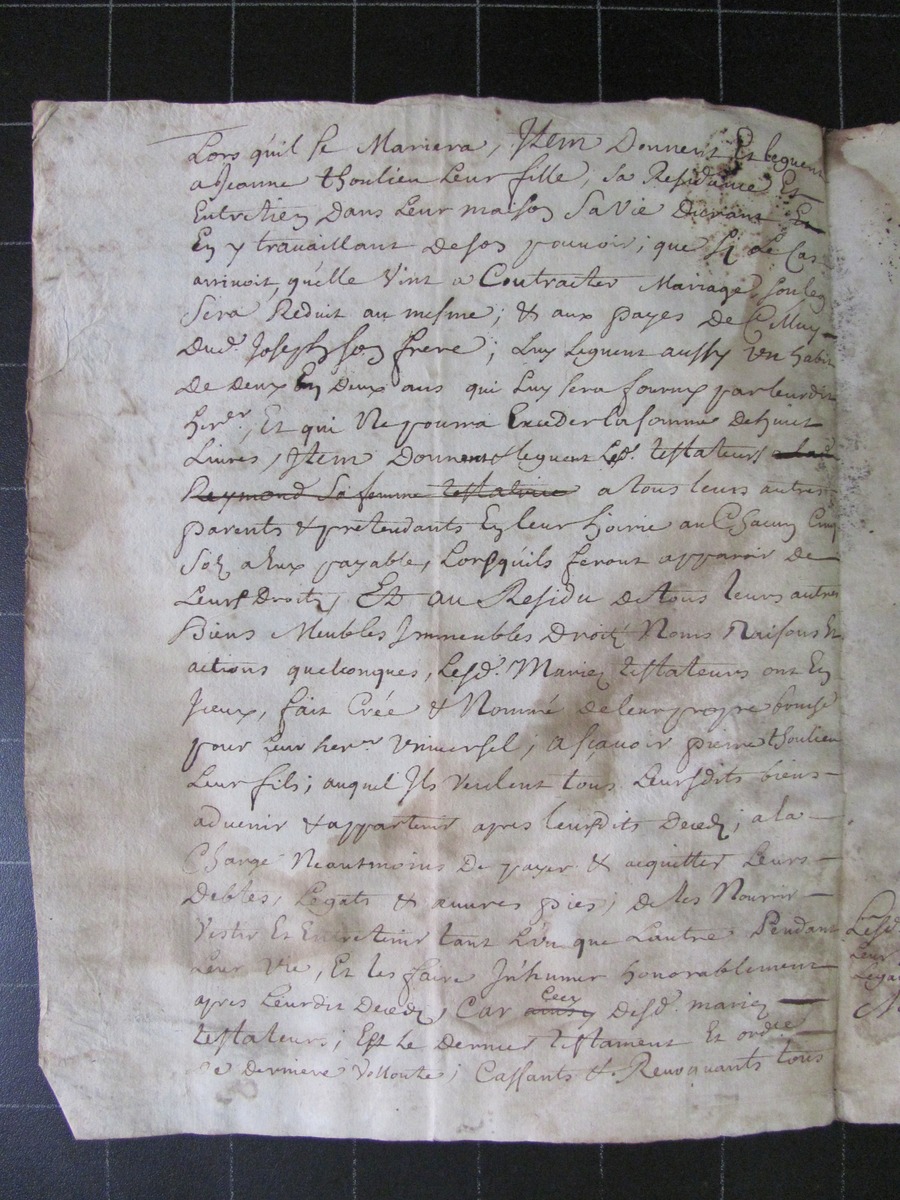 Lors qu'il se Mariera, Item Donnent Et leguent
a Jeanne thoulieu Leur fille, sa Residance Et
Entretien Dans Leur maison Sa Vie Durant Et
En y travaillant de son pouvoir; que Sy Le Cas
arrivoit, qu'elle Vint a Contracter Mariage, son leg
Sera Reduit au mesme; & aux payes de Celluy
Dud. Joseph Son frere; Luy Leguent aussy Un habit
De Deux En Deux ans qui Luy sera fourny par leurdit
her.er, Et qui Ne pourra Exceder la somme de huit
Livres, Item Donnent & leguent Lesd. testateurs
Raymond Sa femme testatrice a tous leurs autres
parents & pretendants En leur hoirie au Chacun Cinq
Solz a Eux payable, Lorsqu'ils feront apparoir de
Leurs Droitz; Et au Residu de tous leurs autres
Biens Meubles Immeubles Droitz Noms Raisons Et
actions quelconques, Lesd. Mariez testateurs ont En
Iceux, fait Crée & Nommé de leur propre bouche
pour Leur her.er Universel; a sçavoir pierre thoulieu
Leur fils; auquel Ils Veulent tous Leursdits biens
advenir & appartenir apres leursdits Decedz; a la
Charge Neantmoins De payer & acquitter Leurs
Debtes, Legats & œuvres pies; de les Nourrir
Vestir Et Entretenir tant L'un que L'autre Pendant
Leur Vie, Et les faire Inhumer honorablement
apres Leurdit Decedz, Car Cecy ainsy Desd. mariez
testateurs; Est Le Dernier testament Et ord.ce
De derniere Vollonté; Cassants & Revoquants tous
Lesd.
Leur
Legat